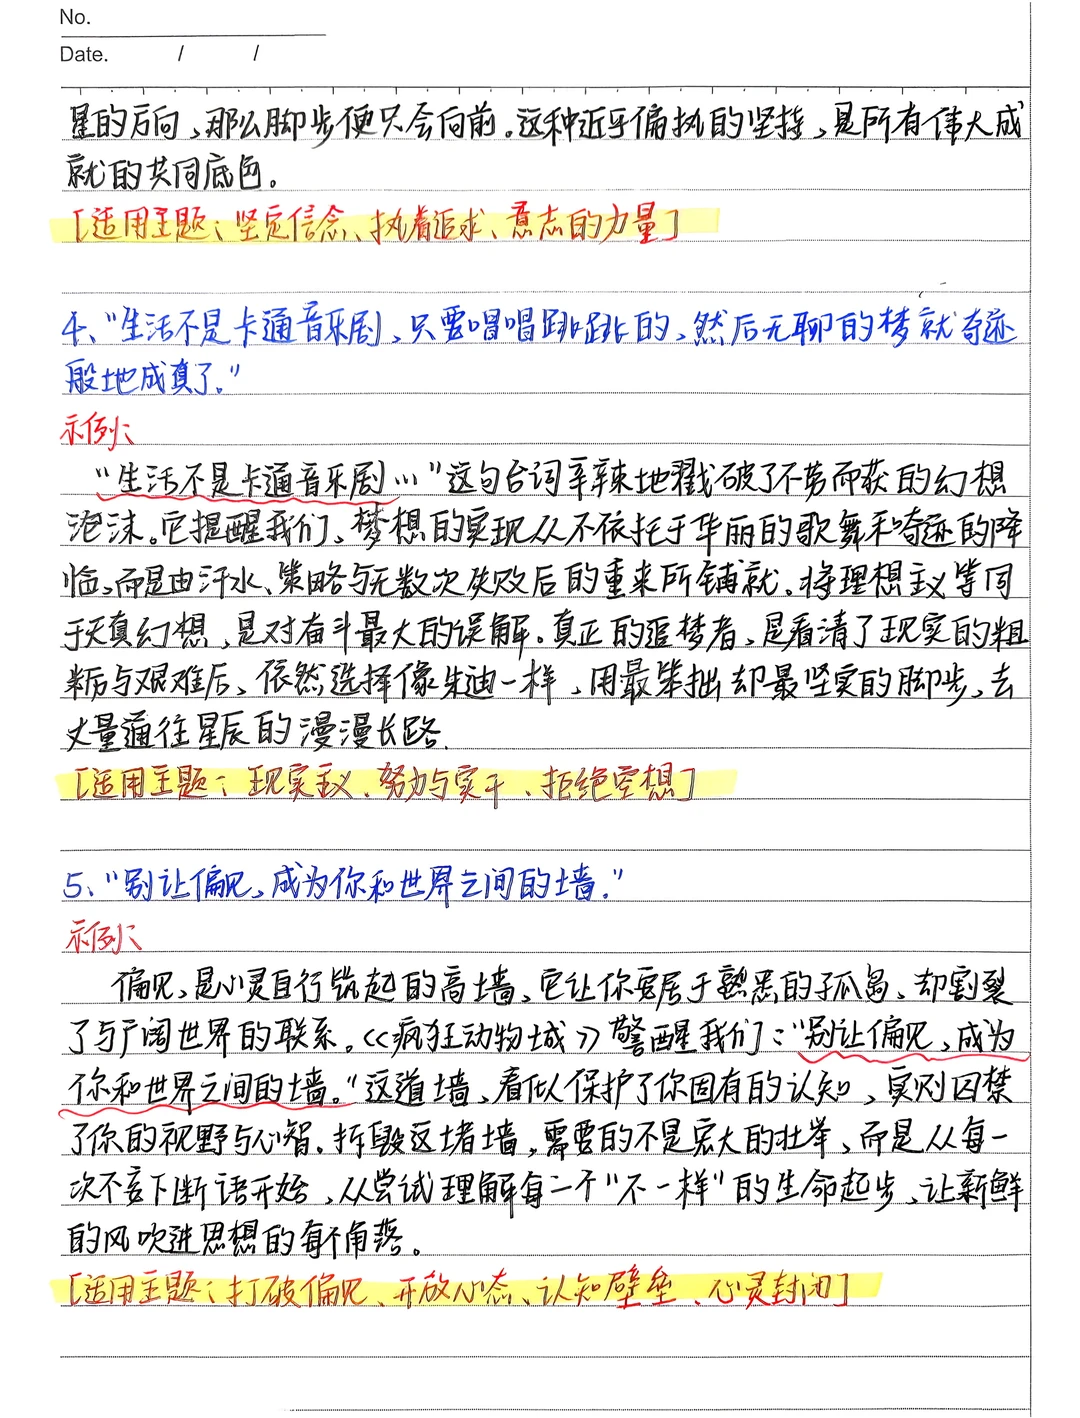 No.
Date. / /
星的方向，那么脚步便只会向前。这种近乎偏执的坚持，是所有伟大成
就的共同底色。
[适用主题：坚定信念、执着追求、意志的力量]
4、“生活不是卡通音乐剧，只要唱唱跳跳的，然后无聊的梦就奇迹
般地成真了。”
示例：
“生活不是卡通音乐剧…”这句台词辛辣地戳破了不劳而获的幻想
泡沫。它提醒我们，梦想的实现从不依托于华丽的歌舞和奇迹的降
临，而是由汗水、策略与无数次失败后的重来所铺就。将理想主义等同
于天真幻想，是对奋斗最大的误解。真正的追梦者，是看清了现实的粗
粝与艰难后，依然选择像朱迪一样，用最笨拙却最坚实的脚步，去
丈量通往星辰的漫漫长路。
[适用主题：现实主义、努力与实干、拒绝空想]
5、“别让偏见，成为你和世界之间的墙。”
示例：
偏见，是心灵自行筑起的高墙，它让你安居于熟悉的孤岛，却割裂
了与广阔世界的联系。《疯狂动物城》警醒我们：“别让偏见，成为
你和世界之间的墙。”这道墙，看似保护了你固有的认知，实则囚禁
了你的视野与心智。拆毁这堵墙，需要的不是宏大的壮举，而是从每一
次不妄下断语开始，从尝试理解每一个“不一样”的生命起步，让新鲜
的风吹进思想的每个角落。
[适用主题：打破偏见、开放心态、认知壁垒、心灵封闭]